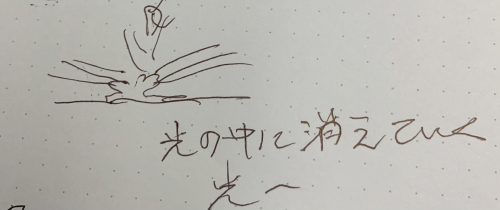 光の中に消えていく
光へ